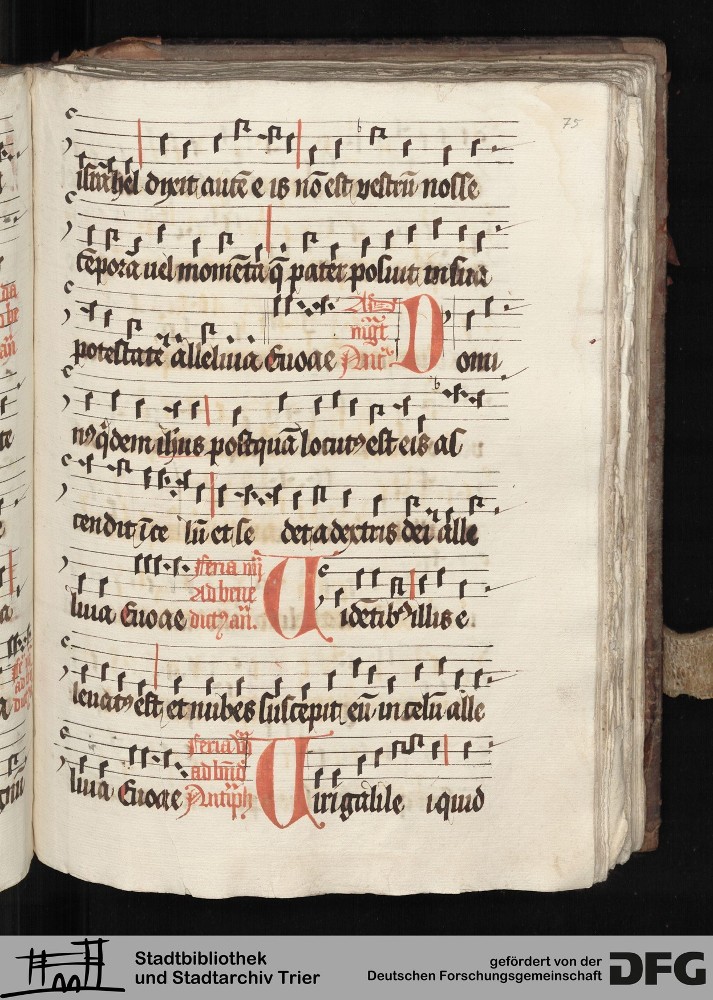 75
israhel dixit autē e is nō est vestrū nosse
tēpora uel momēta q̄ pater posuit in sua
potestate alleluia Euoae Ad mgt Ant D omi
n9 q̇dem ihus postquā locut9 est eis as
cendit ī ce lū et se det a dextris dei alle
luia Euoae feria iiij Ad bene dict9 an. U idētib9 illis e
leuat9 est et nubes suscepit eū in celū alle
luia Euoae feria ad bn̄d Antiph U iri galile i quid
Stadtbibliothek
und Stadtarchiv Trier
gefördert von der
Deutschen Forschungsgemeinschaft DFG